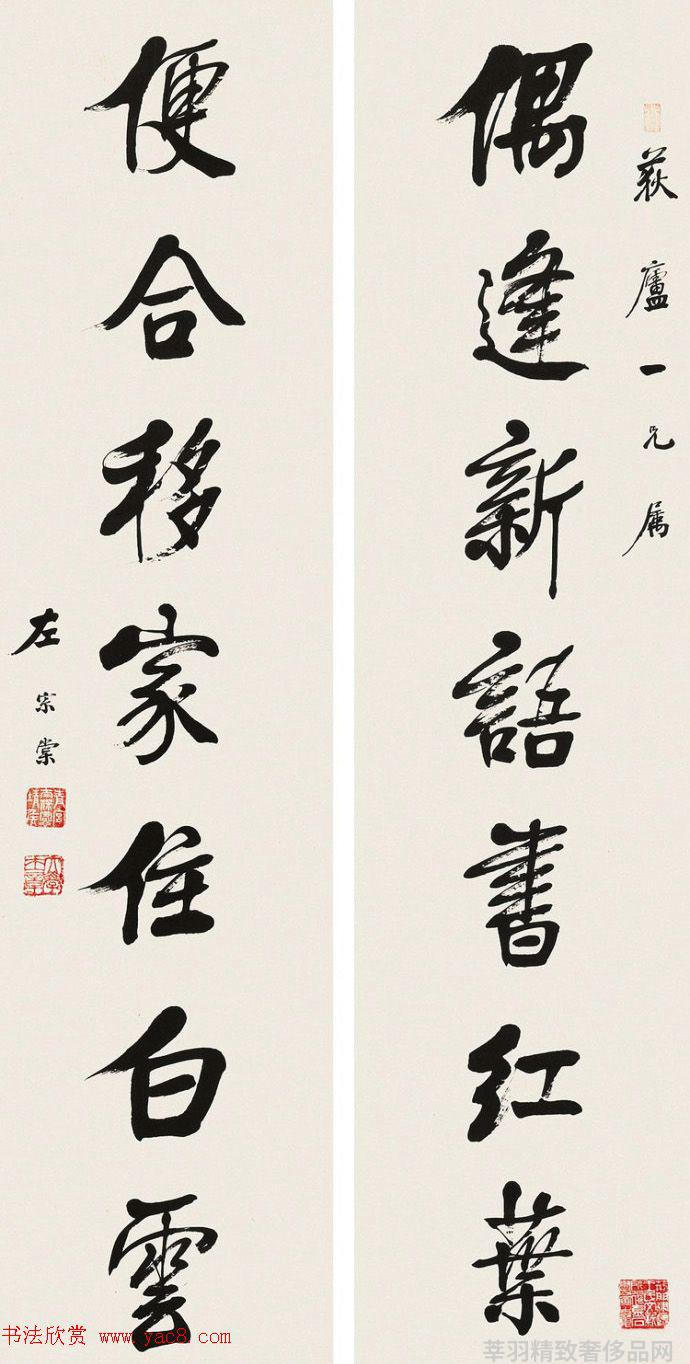 荻廬一兄屬
偶逢新語書紅葉
便合移家住白雲
左宗棠
书法欣赏 www.yac8.com
莘羽精致奢侈品网